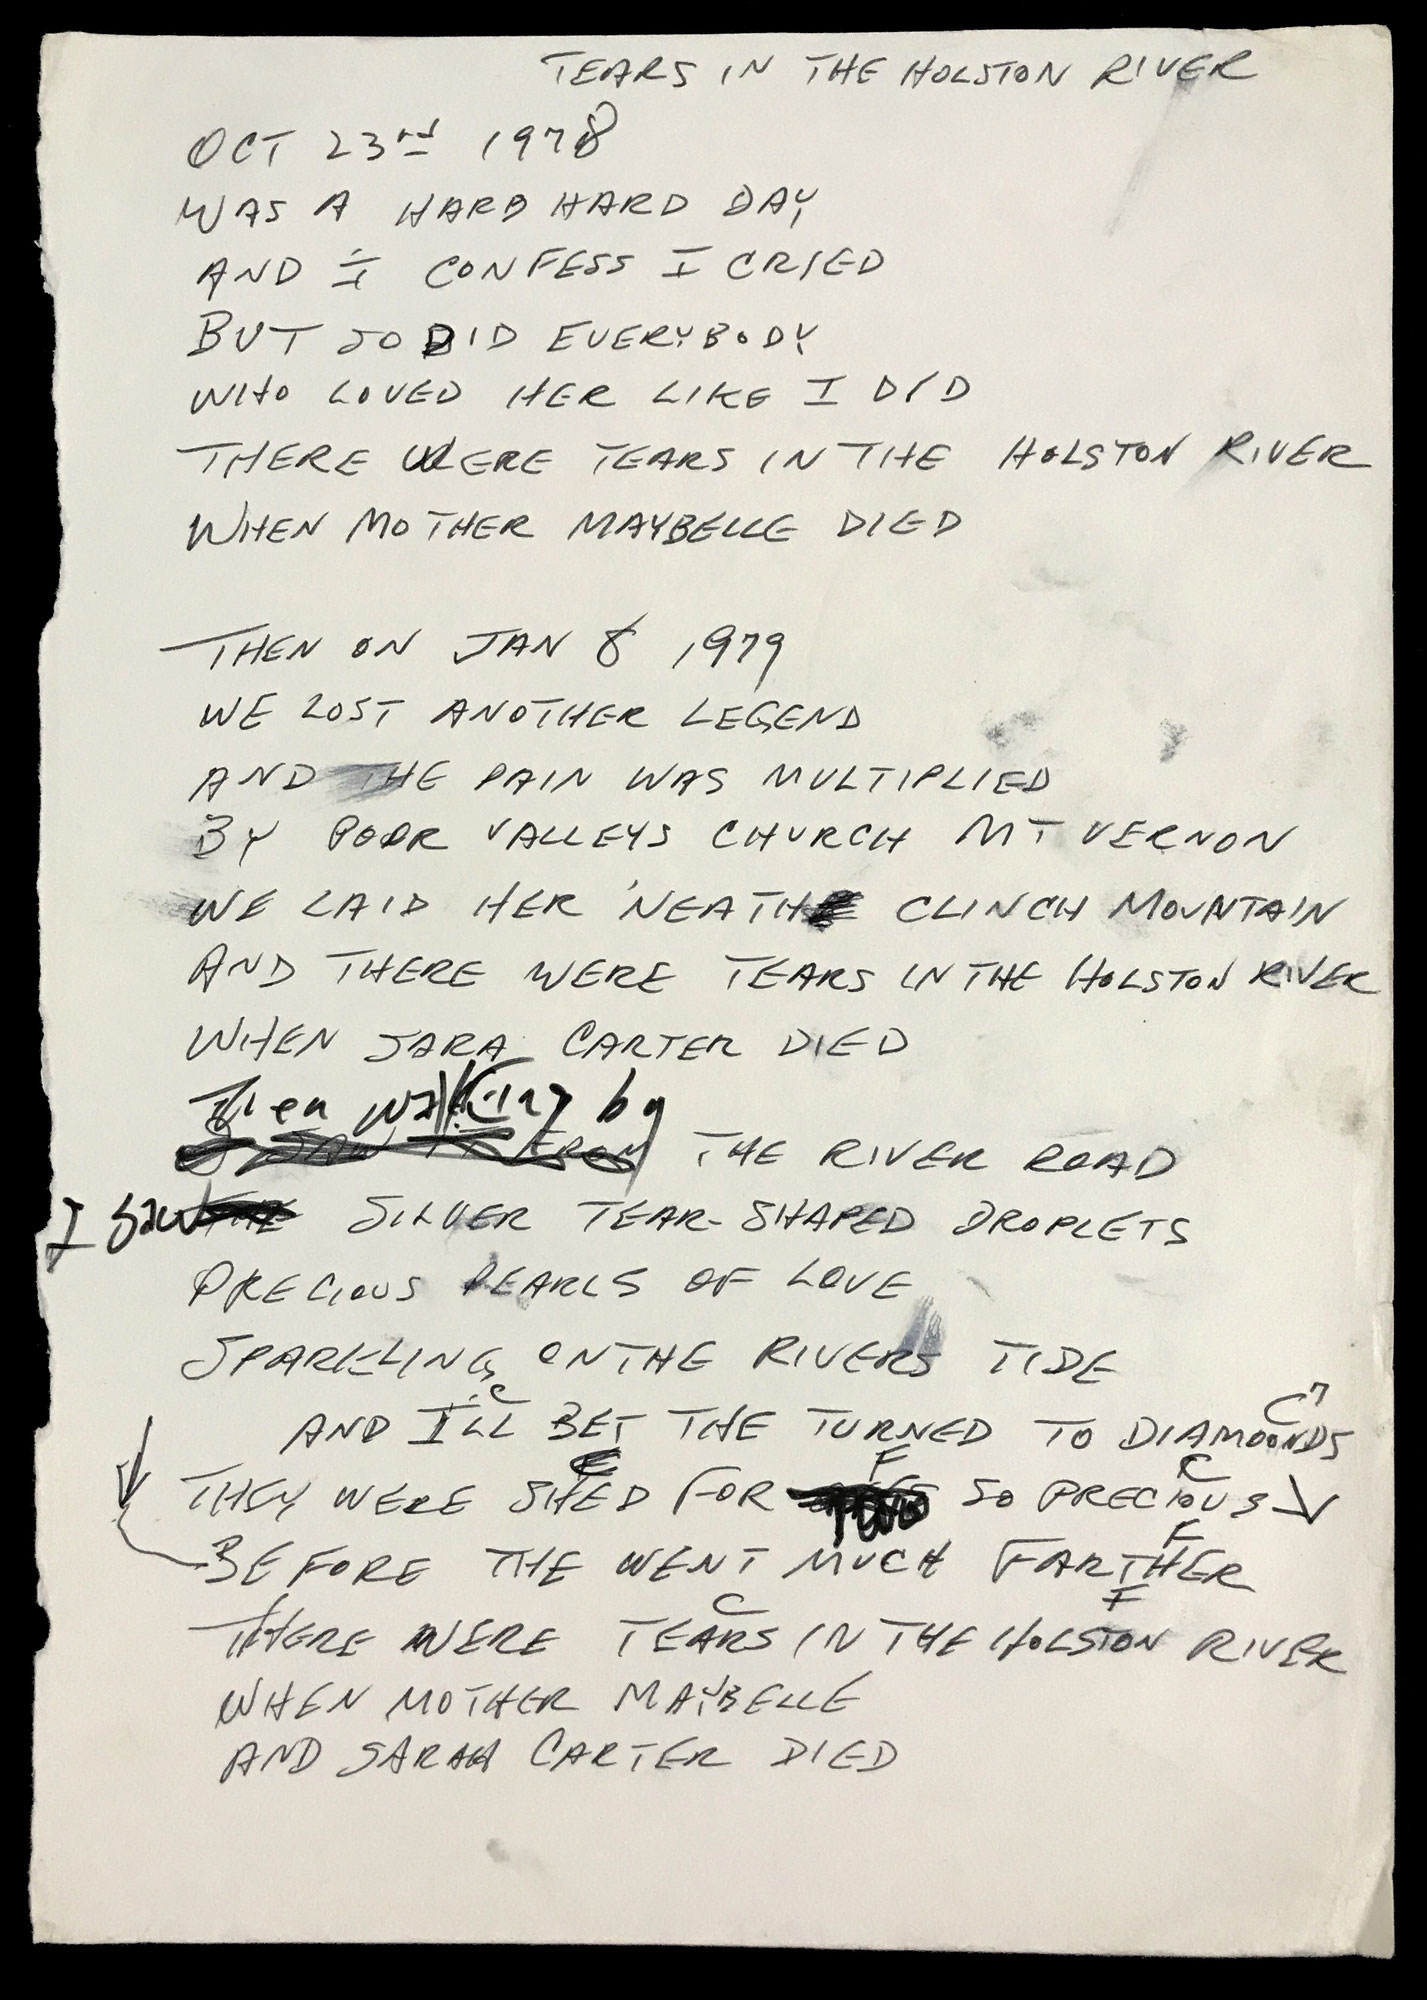 TEARS IN THE HOLSTON RIVER
OCT 23rd 1978
WAS A HARD HARD DAY
AND I CONFESS I CRIED
BUT SO DID EVERYBODY
WHO LOVED HER LIKE I DID
THERE WERE TEARS IN THE HOLSTON RIVER
WHEN MOTHER MAYBELLE DIED
THEN ON JAN 8 1979
WE LOST ANOTHER LEGEND
AND THE PAIN WAS MULTIPLIED
BY POOR VALLEYS CHURCH MT VERNON
WE LAID HER 'NEATH CLINCH MOUNTAIN
AND THERE WERE TEARS IN THE HOLSTON RIVER
WHEN SARA CARTER DIED
Then walking by
THE RIVER ROAD
I saw SILVER TEAR-SHAPED DROPLETS
PRECIOUS PEARLS OF LOVE
SPARKLING ON THE RIVERS TIDE
C C7
AND I'LL BET THE TURNED TO DIAMONDS
C F C
THEY WERE SHED FOR TWO SO PRECIOUS
F
BEFORE THE WENT MUCH FARTHER
C F
THERE WERE TEARS IN THE HOLSTON RIVER
WHEN MOTHER MAYBELLE
AND SARAH CARTER DIED